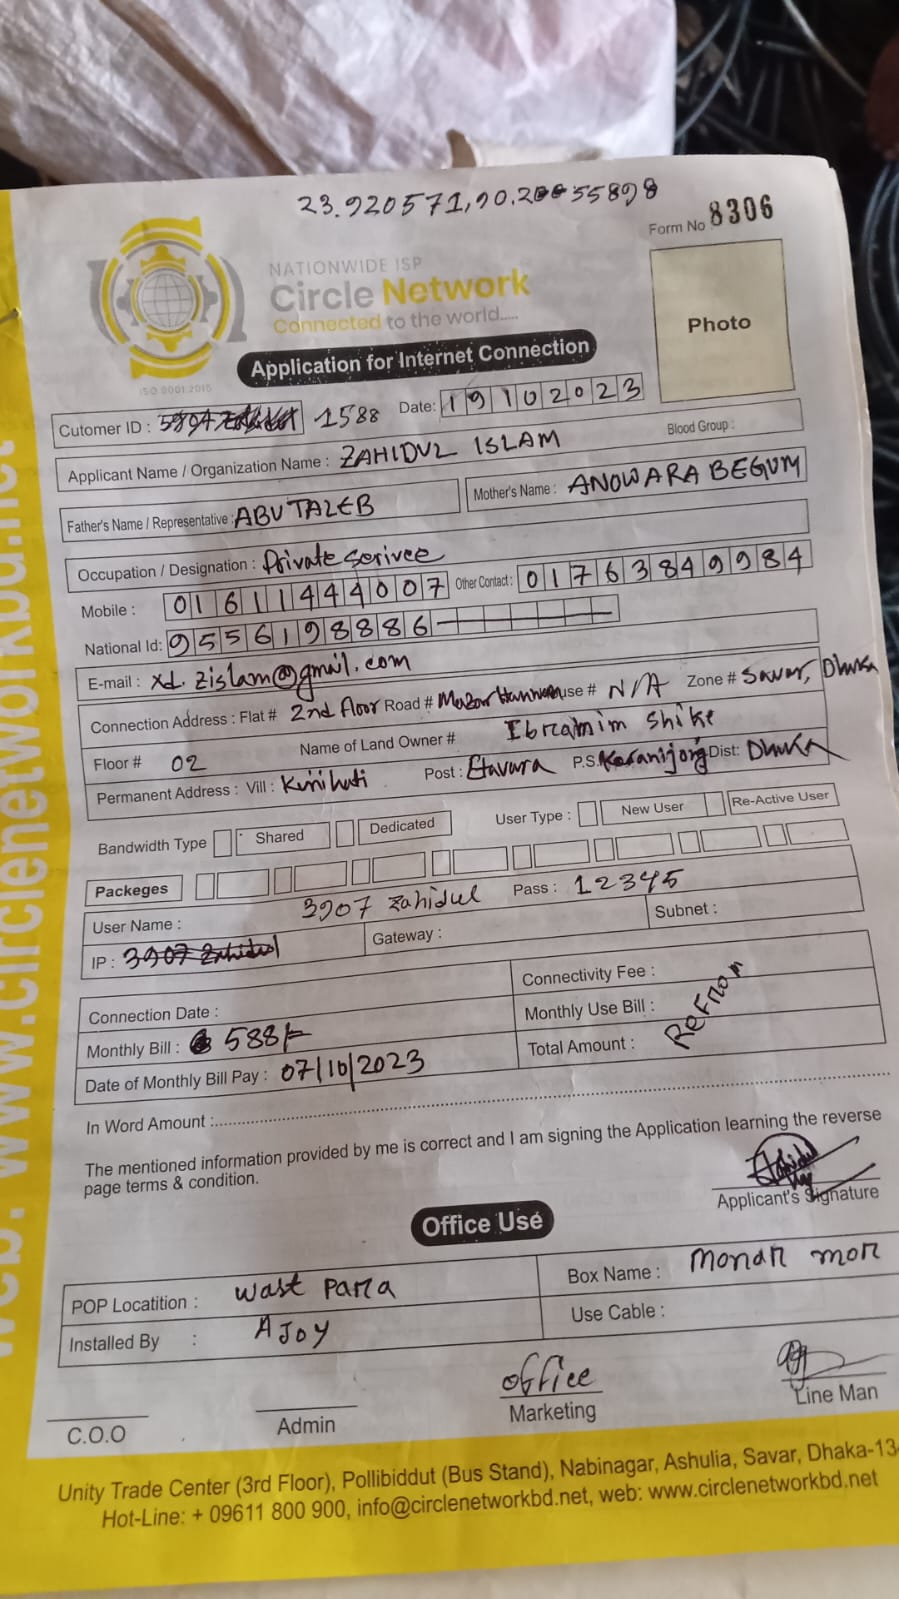 23.920571,90.255898
Form No 8306
NATIONWIDE ISP
Circle Network
Connected to the world.....
ISO 9001:2015
Photo
Application for Internet Connection
Cutomer ID : 1588 Date: 19102023
Applicant Name / Organization Name : ZAHIDUL ISLAM Blood Group :
Father's Name / Representative : ABU TALEB Mother's Name : ANOWARA BEGUM
Occupation / Designation : Private Serivce
Mobile : 01611444007 Other Contact : 01763849984
National Id: 9556198886
E-mail : xd.zislam@gmail.com
Connection Address : Flat # 2nd floor Road # use # N/A Zone # Savar, Dhaka
Floor # 02 Name of Land Owner # Ibrahim
Permanent Address : Vill : Post : Etavara P.S. Dist: Dhaka
Bandwidth Type Shared Dedicated User Type : New User Re-Active User
Packeges
User Name : 3907 Zahidul Pass : 12345
IP : 3907 Zahidul Gateway : Subnet :
Connection Date : Connectivity Fee :
Monthly Bill : 588/- Monthly Use Bill :
Date of Monthly Bill Pay : 07/10/2023 Total Amount :
In Word Amount :
The mentioned information provided by me is correct and I am signing the Application learning the reverse
page terms & condition.
Applicant's Signature
Office Use
POP Locatition : Wast Para Box Name : Monar mor
Installed By : AJOY Use Cable :
office
C.O.O Admin Marketing Line Man
Unity Trade Center (3rd Floor), Pollibiddut (Bus Stand), Nabinagar, Ashulia, Savar, Dhaka-13
Hot-Line: + 09611 800 900, info@circlenetworkbd.net, web: www.circlenetworkbd.net
web: www.circlenetworkbd.net